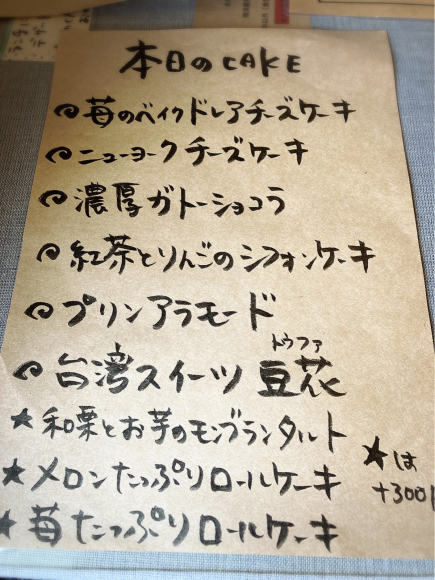 本日のCAKE
苺のベイクドレアチーズケーキ
ニューヨークチーズケーキ
濃厚ガトーショコラ
紅茶とりんごのシフォンケーキ
プリンアラモード
トウファ
台湾スイーツ 豆花
★和栗とお芋のモンブランタルト
★メロンたっぷりロールケーキ
★苺たっぷりロールケーキ
★は
+300